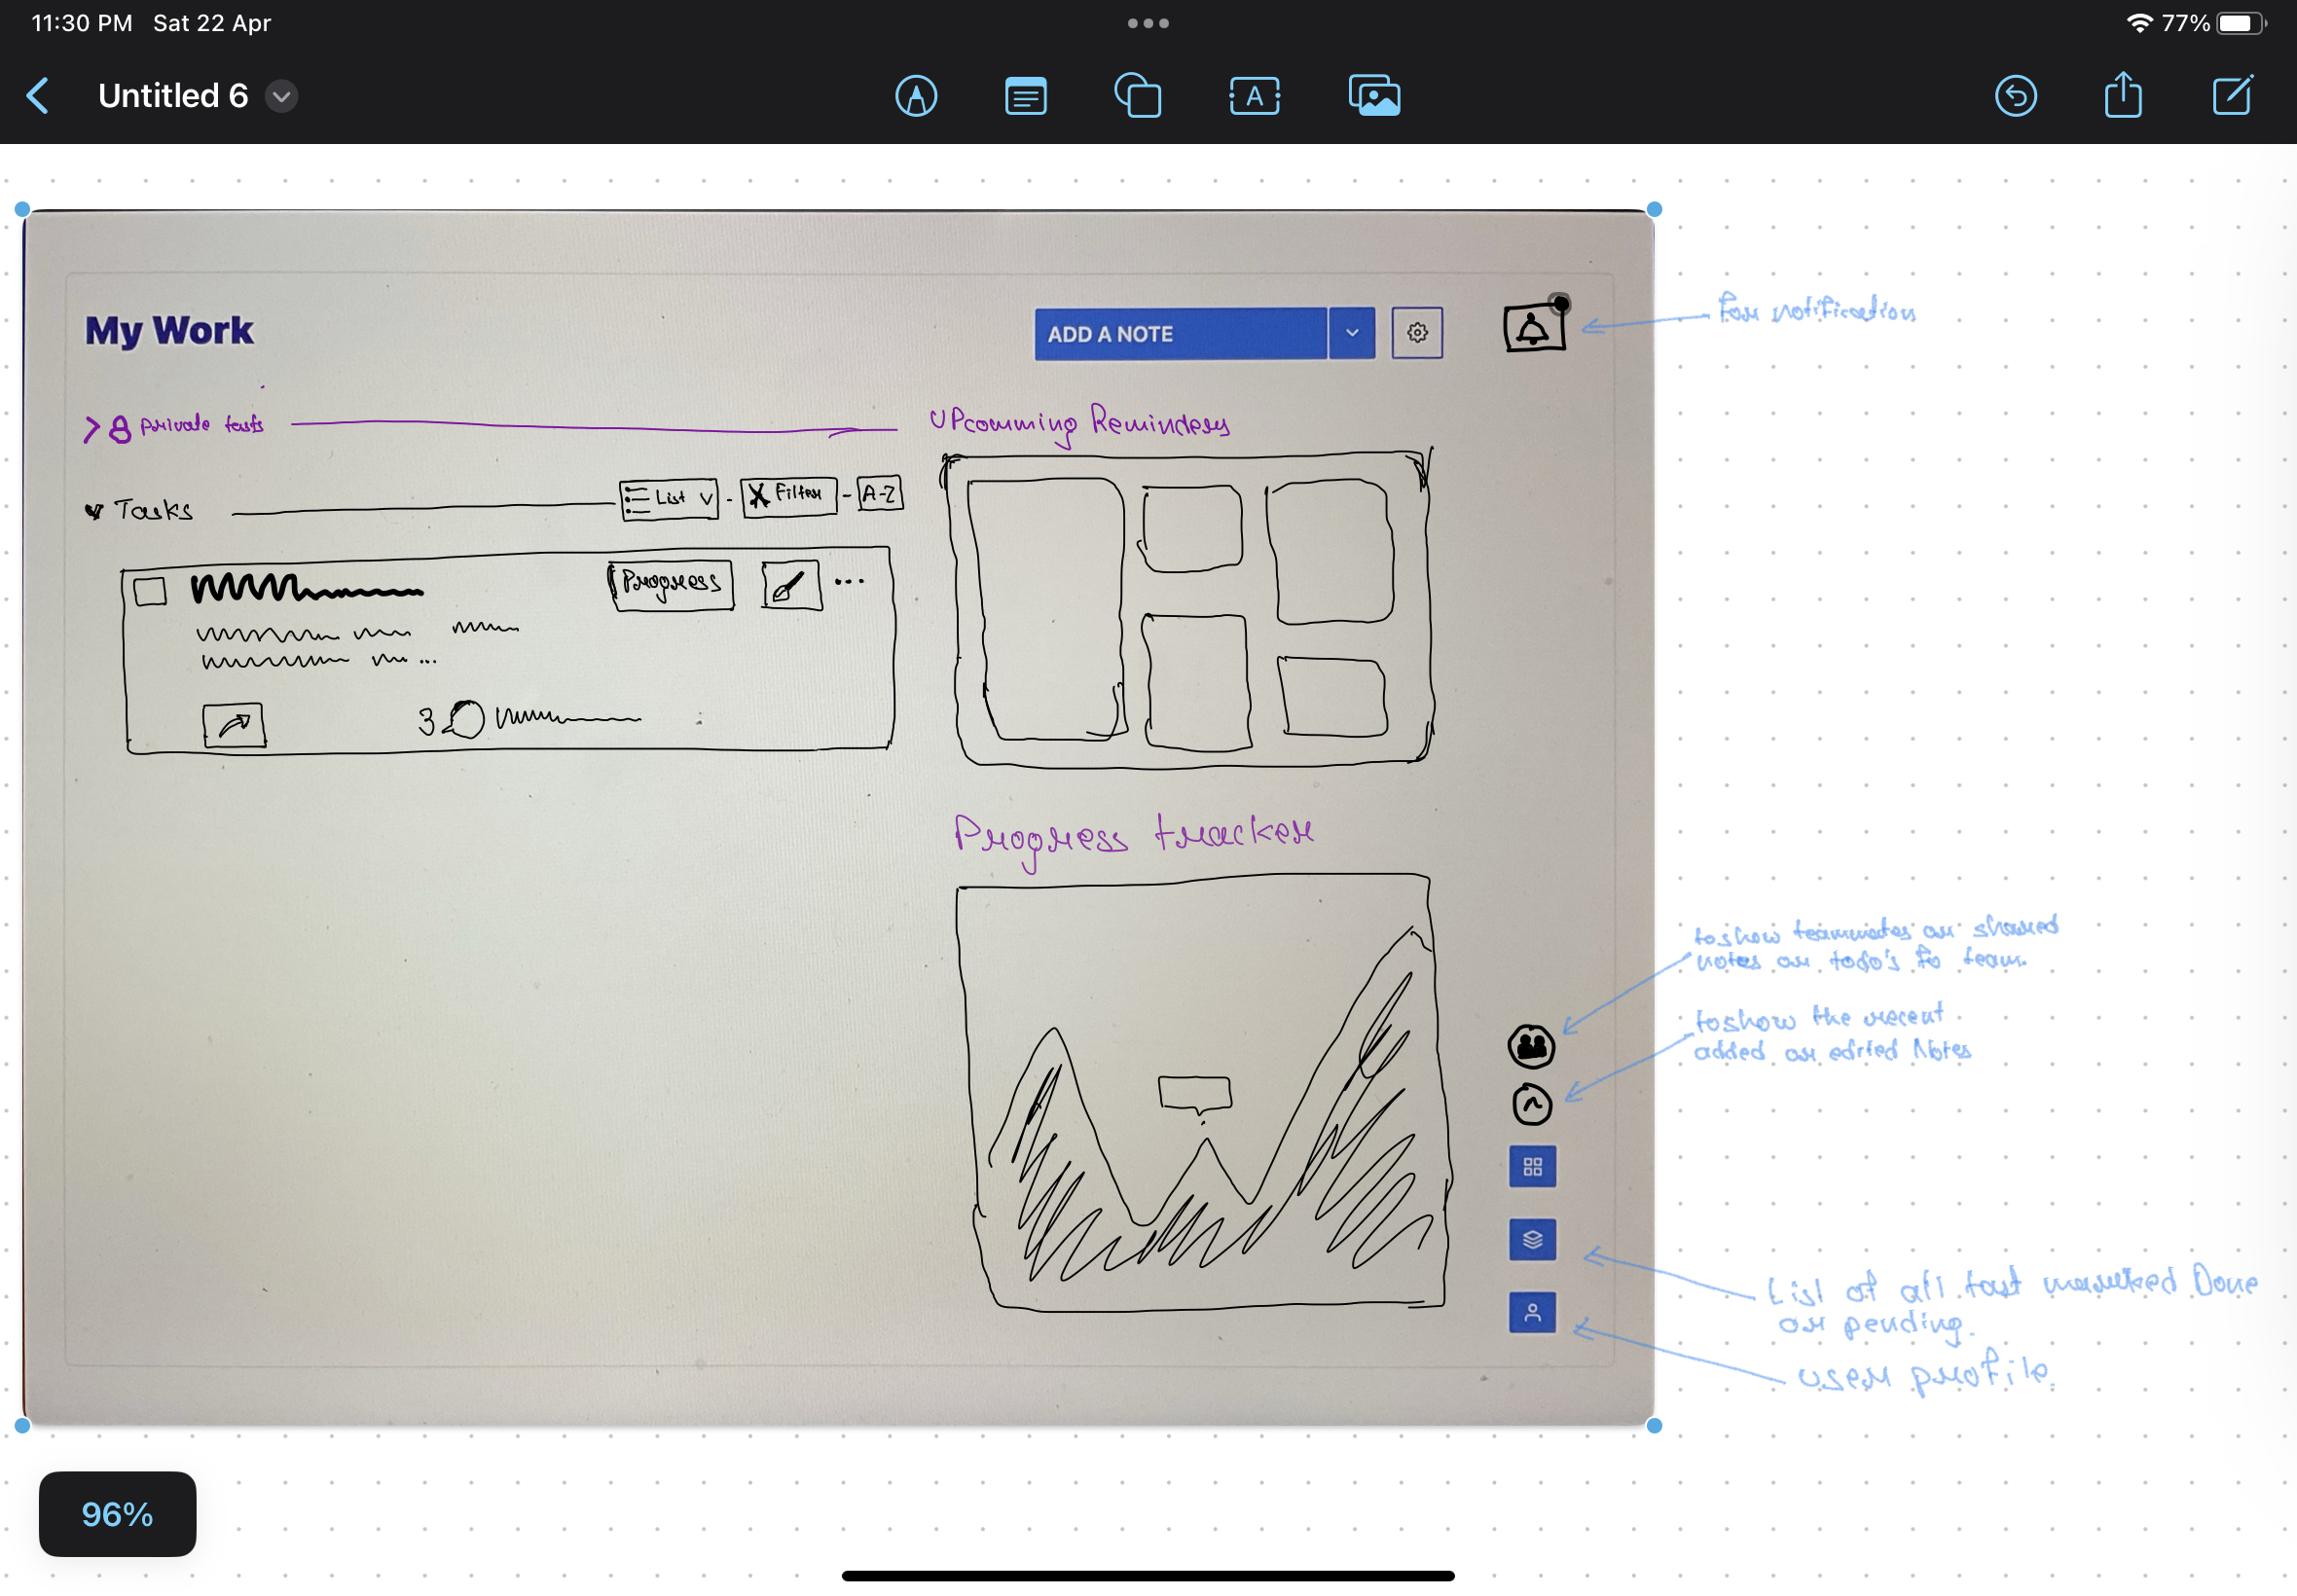 11:30 PM Sat 22 Apr
77%
Untitled 6
A
My Work
ADD A NOTE
for notification
private tasts
UPcomming Reminders
Tasks
List
Filter
A-Z
Progress
...
...
3
Progress tracker
to show teammates or shared
notes or todo's to team.
to show the recent
added or edited Notes
List of all tast marked Done
or pending.
user profile.
96%